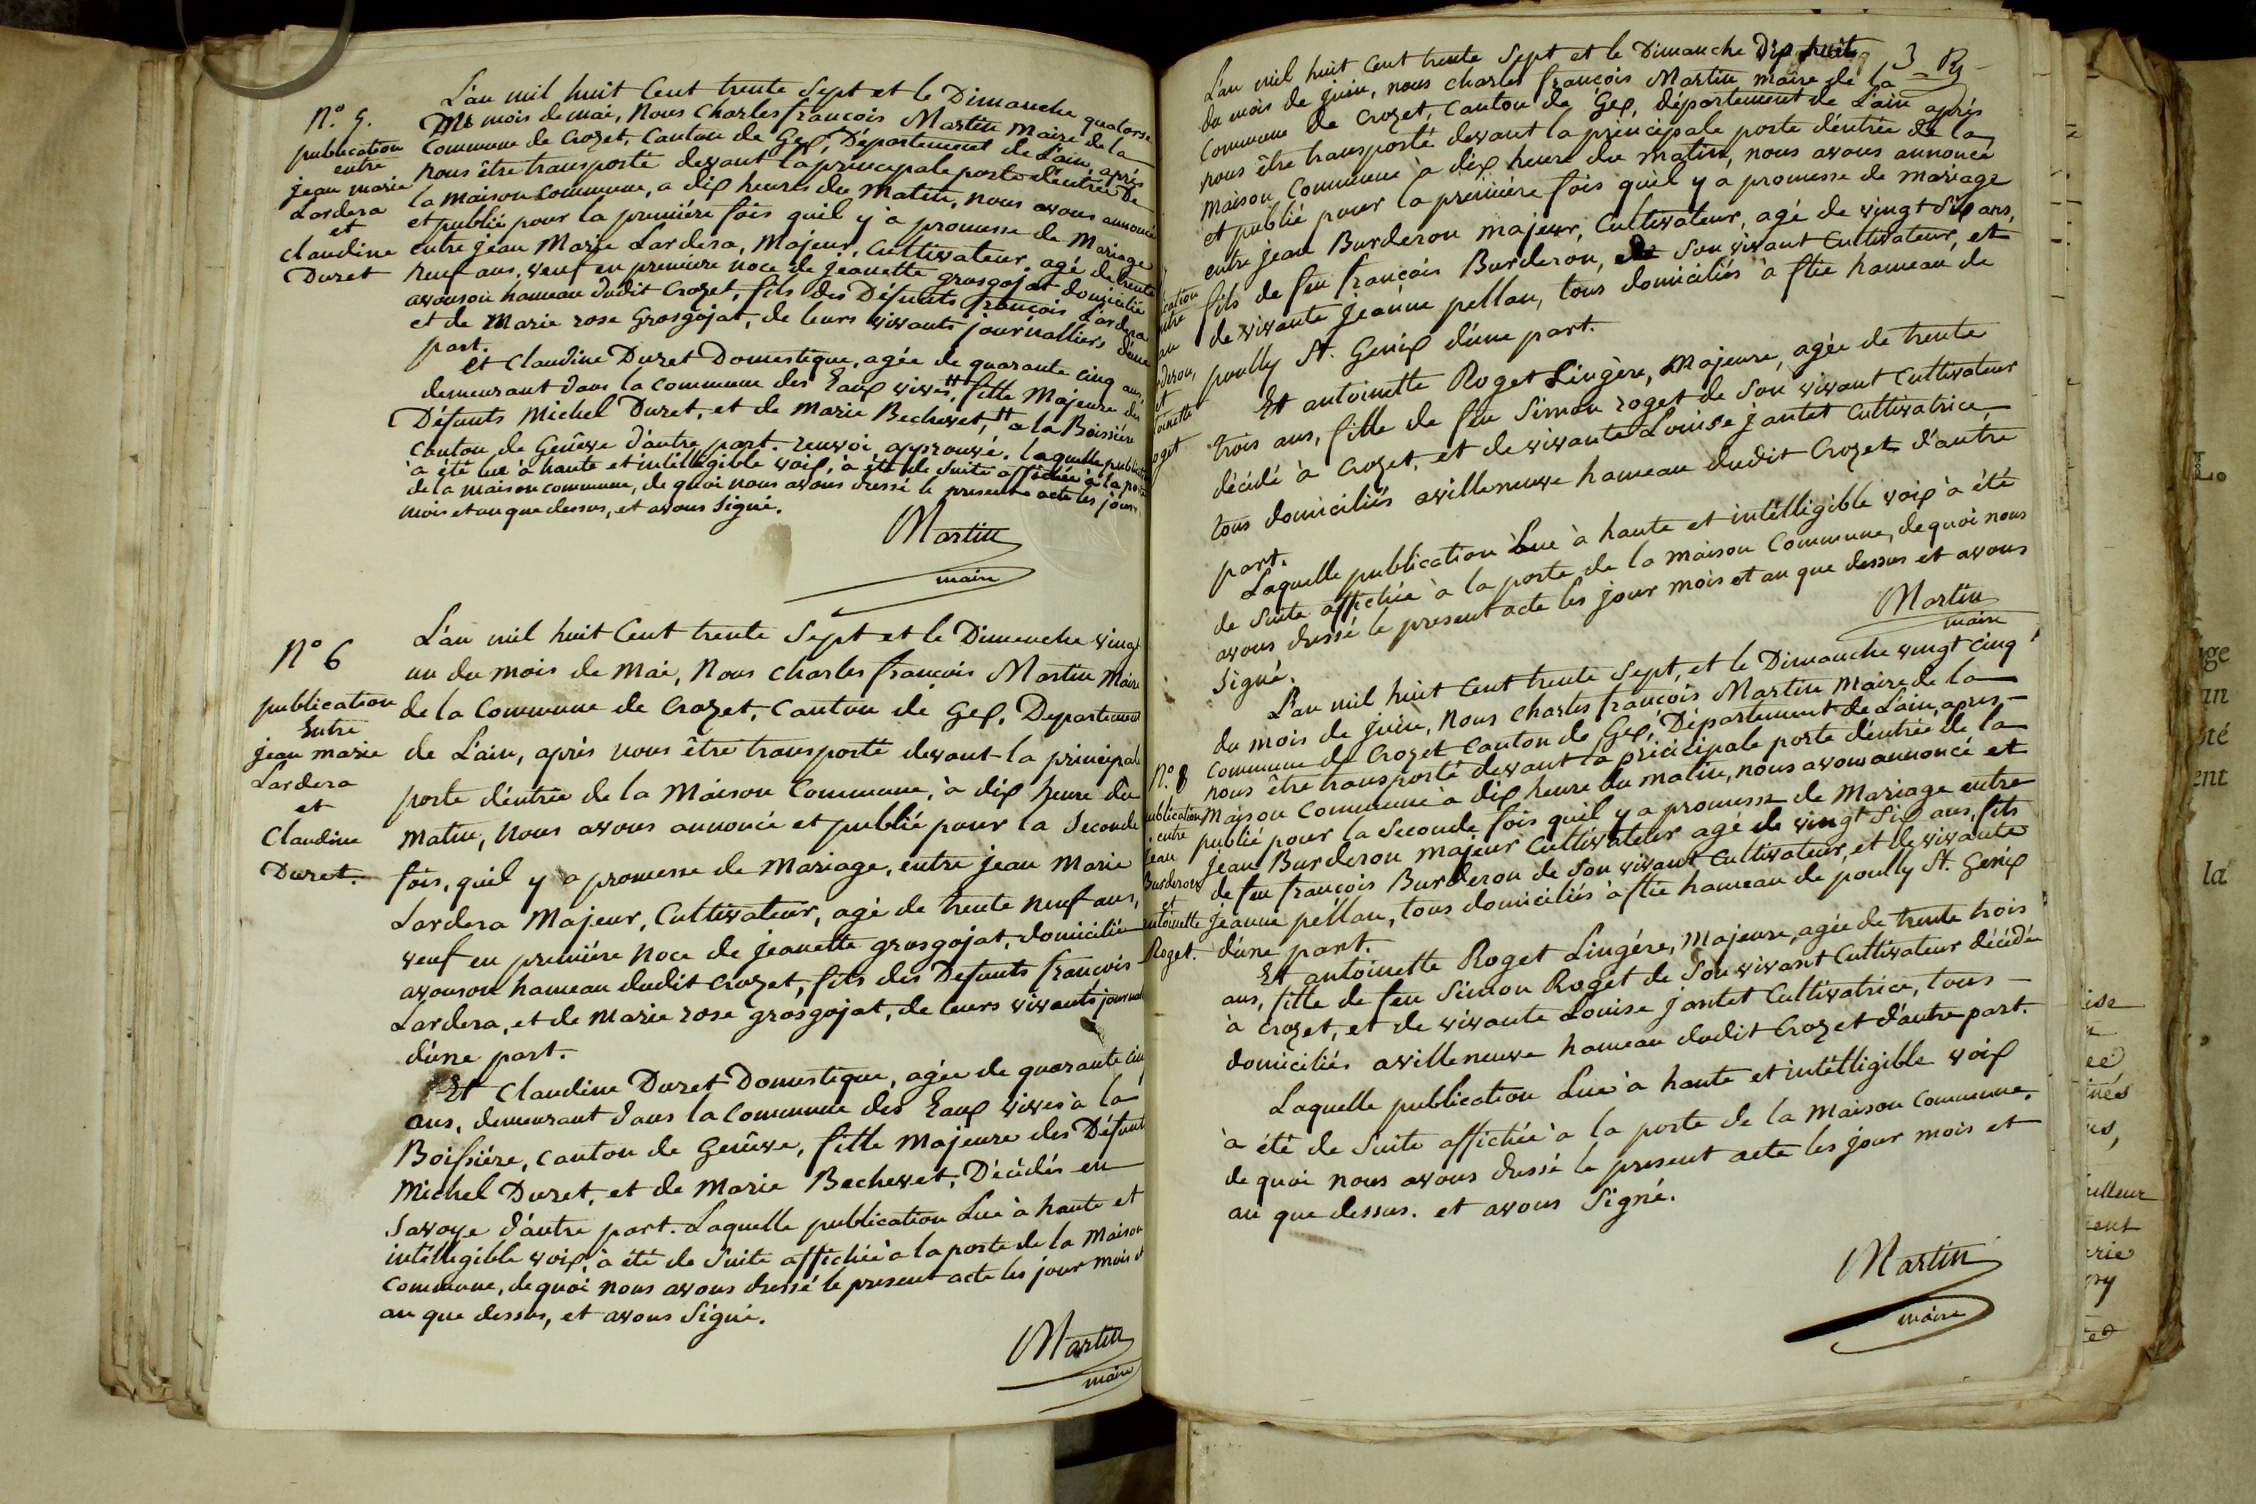 N.° 5.
publication
entre
jean marie
Lardera
et
claudine
Duret
L'an mil huit Cent trente Sept et le Dimanche quatorse
du mois de mai, Nous Charles françois Martin Maire de la
Commune de Crozet, Canton de Gex, Département de L'ain, après
nous être transporté devant la principale porte d'entrée De
la maison Commune, a dix heures du Matin, nous avons annoncé
et publié pour la première fois quil y'a promesse de Mariage
entre jean Marie Lardera, Majeur, Cultivateur, agé de trente
neuf ans, veuf en première noce de jeanette grosgojat domicilié
avouson hameau dudit Crozet, fils des Défunts françois Lardera
et de Marie rose Grosgojat, de leurs vivants journalliers d'une
part.
et Claudine Duret Domestique, agée de quarante cinq ans,
demeurant dans la Commune des Eaux vives, # fille Majeure des
Défunts Michel Duret, et de Marie Bechevet, # a la Boissiére
Canton de Genêve d'autre part. renvoi approuvé. laquelle publication
à été lue à haute et intélligible voix, à été de suite affichée à la porte
de la maison commune, de quoi nous avons dressé le present acte les jour
mois et an que dessus, et avons Signé.
Martin
maire
N° 6
publication
Entre
jean marie
Lardera
et
Claudine
Duret.
L'an mil huit Cent trente Sept et le Dimenche vingt
un du mois de Mai, Nous Charles françois Martin Maire
de la Commune de Crozet, Canton de Gex, Departement
de L'ain, après nous être transporté devant la principale
porte d'entrée de la Maison Commune, à dix heure du
Matin, Nous avons annoncé et publié pour la Seconde
fois, quil y a promesse de Mariage, entre jean Marie
Lardera Majeur, Cultivateur, agé de trente neuf ans,
veuf en première noce de jeanette grosgojat, domicilié
avouson hameau dudit Crozet, fils des Defunts françois
Lardera, et de Marie rose grosgojat, de leurs vivants journal
d'une part.
Et Claudine Duret Domestique, agée de quarante cin
ans, demeurant dans la Commune des Eaux vives à la
Boissiére, Canton de Genêve, fille Majeure des Défunt
Michel Duret, et de Marie Bechevet, Décédés en
Savoye d'autre part. Laquelle publication Lue à haute et
intélligible voix, à été de Suite affichée à la porte de la Maison
Commune, de quoi nous avons dressé le present acte les jour mois et
an que dessus, et avons Signé.
Martin
maire
3
L'an mil huit Cent trente Sept et le Dimanche Dix huit
du mois de juin, nous charles françois Martin maire de la
Commune de Crozet, Canton de Gex, département de L'ain après
nous être transporté devant la principale porte d'entrée de la
maison Commune à dix heure du matin, nous avons annoncé
et publié pour la première fois quil y a promesse de mariage
entre jean Burderon majeur, Cultivateur, agé de vingt Six ans,
fils de feu françois Burderon, de Son vivant Cultivateur, et
de vivante jeanne pellau, tous domiciliés à flie hameau de
poully St. Genix d'une part.
ication
ntre
an
deron,
et
oinette
oget
Et antoinette Roget Lingère, Majeure, agée de trente
trois ans, fille de feu Simon roget de Son vivant Cultivateur
décédé à Crozet, et de vivante Louise jantet Cultivatrice,
tous domiciliés avilleneuve hameau dudit Crozet d'autre
part.
Laquelle publication Lue à haute et intélligible voix à été
de Suite affichée à la porte de la maison Commune, de quoi nous
avons dressé le present acte les jour mois et an que dessus et avons
Signé.
Martin
maire
L'an mil huit Cent trente Sept, et le Dimanche vingt Cinq
du mois de juin, Nous charles françois Martin Maire de la
Commune de Crozet Canton de Gex, Département de L'ain, apres
nous être transporté devant la pricicipale porte d'éntrée de la
Maison Commune à dix heure du matin, nous avons annoncé et
publié pour la Seconde fois quil y a promesse de Mariage entre
Jean Burderon majeur Cultivateur agé de vingt Six ans, fils
de feu françois Burderon de Son vivant Cultivateur, et de vivante
jeanne pellau, tous domiciliés à flie hameau de poully St. Genix
d'une part.
N.° 8
ublication
entre
jean
Burderon
et
antoinette
Roget.
Et antoinette Roget Lingére, Majeure, agée de trente trois
ans, fille de feu Simon Roget de Son vivant Cultivateur décédé
à Crozet, et de vivante Louise jantet Cultivatrice, tous
domiciliés avilleneuve hameau dudit Crozet d'autre part.
Laquelle publication Lue à haute et intélligible voix
à été de Suite affichée à la porte de la Maison Commune,
de quoi nous avons dressé le present acte les jour mois et
an que dessus. et avons Signé.
Martin
maire